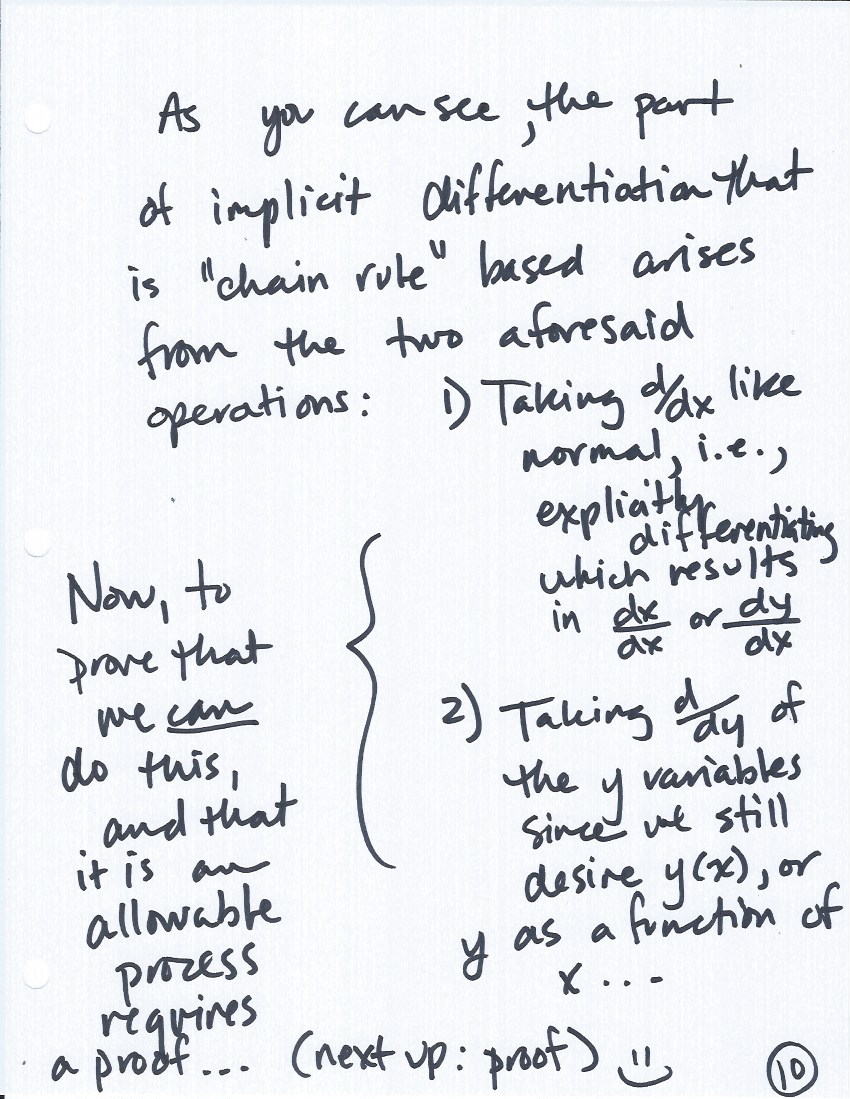 As you can see, the part
of implicit differentiation that
is "chain rule" based arises
from the two aforesaid
operations: 1) Taking d/dx like
normal, i.e.,
explicitly
differentiating
which results
in dx/dx or dy/dx
2) Taking d/dy of
the y variables
since we still
desire y(x), or
y as a function of
x...
Now, to
prove that
we can
do this,
and that
it is an
allowable
process
requires
a proof... (next up: proof)
10